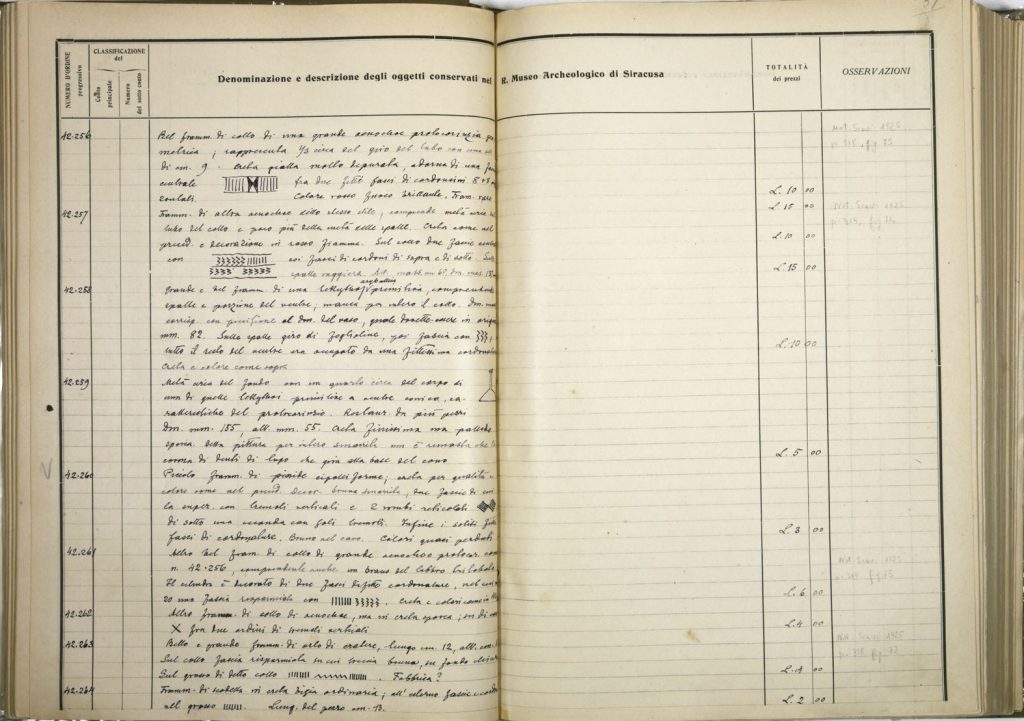 NUMERO D'ORDINE progressivo
CLASSIFICAZIONE del
Collo principale
Numero del sotto conto
Denominazione e descrizione degli oggetti conservati nel R. Museo Archeologico di Siracusa
TOTALITÀ dei prezzi
OSSERVAZIONI
42.256 Bel framm. di collo di una grande oenochoe protocorinzia geo
metrica; rappresenta 1/3 circa del giro del labo con una alt.
di cm. 9. Creta gialla molto depurata, adorna di una fascia
centrale fra due fitti fasci di cordoncini
Colore rosso fuoco brillante. L. 10 00
42.257 Framm. di altra oenochoe dello stesso stile, comprende metà circa del L. 15 00
tubo del collo e poco più della metà delle spalle. Creta come nel
preced. e decorazione in rosso fiamma. Sul collo due fascie L. 10 00
con coi fasci di cordoni di sopra e di sotto. Sulle
spalle raggiera. L. 15 00
42.258 Grande e bel framm. di una lekythos aryballica primitiva, comprendente
spalle e porzione del ventre; manca per intero il collo. Dm. mas
corrisp. con precisione al dm. del vaso, quale dovette essere in origine
mm. 82. Sulle spalle giro di foglioline, poi fascia con
tutto il resto del ventre era occupato da una fittissima cordonatura L. 10 00
Creta e colore come sopra
42.259 Metà circa del fondo con un quarto circa del corpo di
una di quelle lekythoi primitive a ventre conico, ca-
ratteristiche del protocorinzio. Restaur. da più pezzi
Dm. mm. 155, alt. mm. 55. Creta finissima ma
epoma. Della pittura per intero smarrita non è rimasta che la
corona di denti di lupo che gira alla base del cono L. 5 00
42.260 Piccolo framm. di pisside cipolliforme; creta per qualità e
colore come nel preced. Decor. bruna smarrita, due fascie di cui
la super. con tremoli verticali e 2 rombi reticolati
di sotto una seconda con soli tremoli. Infine i soliti
fasci di cordonature. Bruno nel cavo. Colori quasi perduti L. 3 00
42.261 Altro bel fram. di collo di grande oenochoe protocor. come
n. 42.256, comprendente anche un tratto del labbro trilobato.
Il cilindro è decorato di due fasci di fitte cordonature, nel cui
una fascia risparmiata con Creta e colori come L. 6 00
42.262 Altro framm. di collo di oenochoe, ma in creta epoca; un di
X fra due ordini di tremoli verticali L. 4 00
42.263 Bello e grande framm. di orlo di cratere, lungo cm. 12, alt. cm.
Sul collo fascia risparmiata in cui treccia bruna, su fondo chiaro
Sul grosso di detto collo . Fabbrica? L. 4 00
42.264 Framm. di scodella in creta bigia ordinaria; all'esterno fascie e cordo
nel grosso . Lung. del pezzo cm. 13. L. 2 00
Not. Scavi 1925
p. 318, fig. 73
Not. Scavi 1925
p. 319, fig. 74
Not. Scavi 1925
Not. Scavi 1925
p. 318 fig. 72